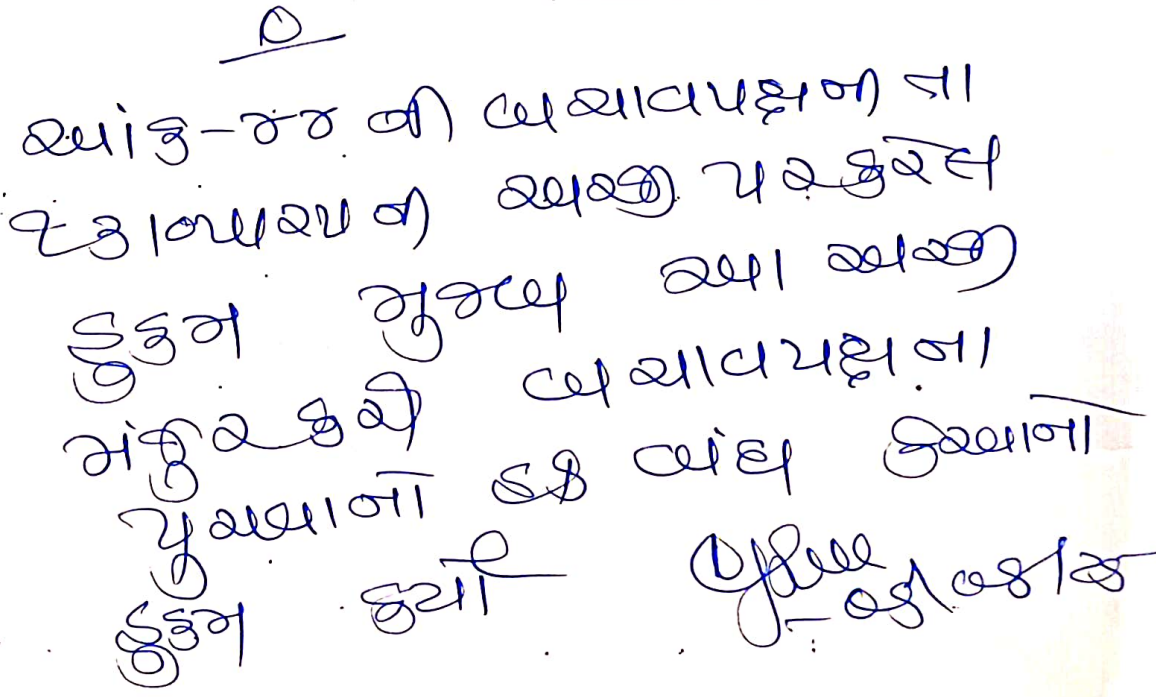 આંક-૨૨ ની બચાવપક્ષની ના
ની અરજી પર કરેલ
હુકમ મુજબ આ અરજી
મંજુર કરી બચાવપક્ષના
પુરાવાનો હક્ક બંધ કરવાનો
હુકમ કર્યો